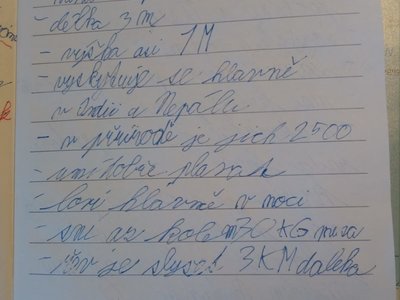 - délka 3 m
- výška asi 1M
- vyskytuje se hlavně
v Indii a Nepálu
- v přírodě je jich 2500
- umí dobře plavat
- loví hlavně v noci
- sní až kolem 30 KG masa
- řev je slyšet 3KM daleka